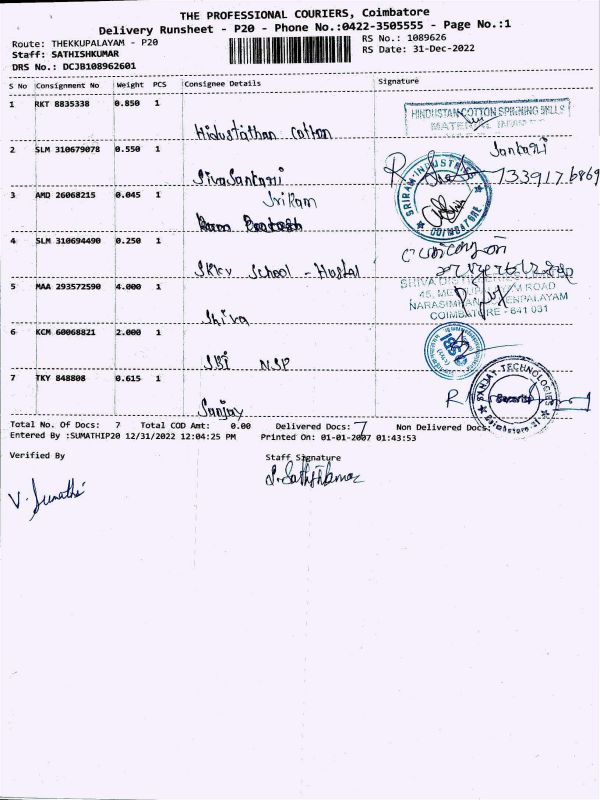 THE PROFESSIONAL COURIERS, Coimbatore
Delivery Runsheet - P20 - Phone No.:0422-3505555 - Page No.:1
Route: THEKKUPALAYAM - P20
RS No.: 1089626
Staff: SATHISHKUMAR
RS Date: 31-Dec-2022
DRS No.: DCJB108962601
S No Consignment No Weight PCS Consignee Details Signature
1 RKT 8835338 0.850 1
HINDUSTAN COTTON SPINNING MILLS
Hidustathan Cotton
2 SLM 310679078 0.550 1
Sankari
Siva Sankari
7339176869
SRIRAM INDUSTR
COIMBATORE
3 AMD 26068215 0.045 1
Sri Ram
4 SLM 310694490 0.250 1
SKKV School - Hostal
5 MAA 293572590 4.000 1
SHIVA
NARASIM
ENPALAYAM
COIMBATORE - 641 031
Shiva
6 KCM 60068821 2.000 1
SBI NSP
7 TKY 848808 0.615 1
SANJAY TECHNOLOGIES
Security
Coimbatore
Sanjay
Total No. Of Docs: 7 Total COD Amt: 0.00 Delivered Docs: 7 Non Delivered Docs:
Entered By :SUMATHIP20 12/31/2022 12:04:25 PM Printed On: 01-01-2007 01:43:53
Verified By Staff Signature
V. Sumathi
S. Sathishkumar